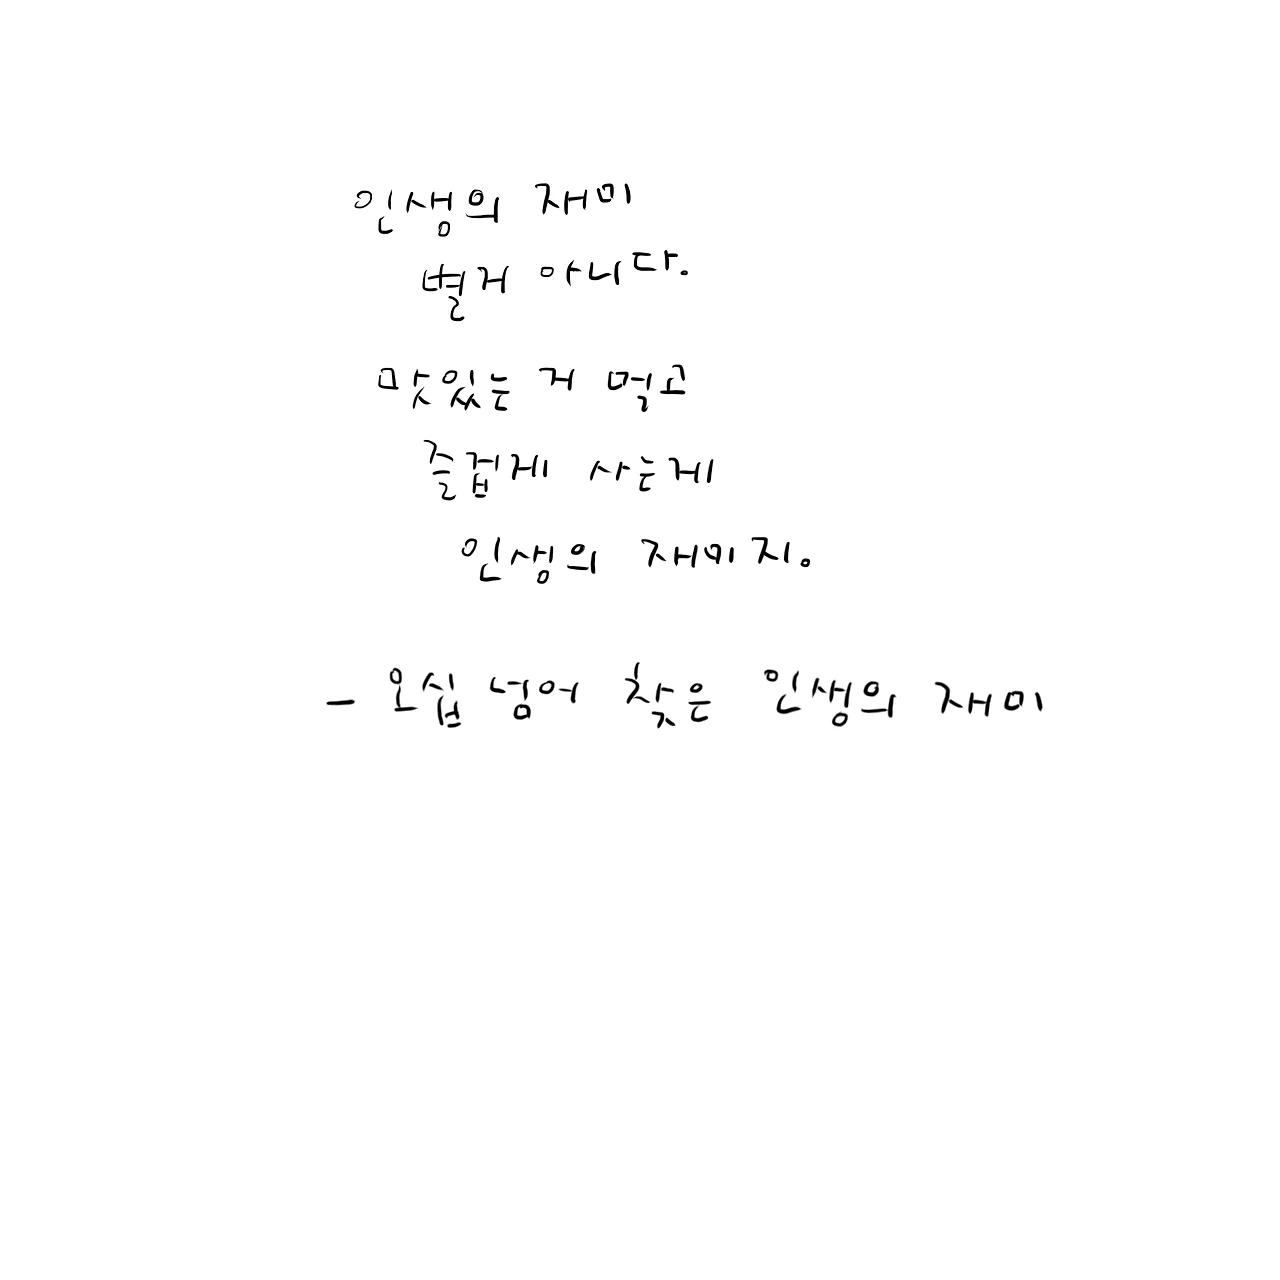 인생의 재미
별거 아니다.
맛있는 거 먹고
즐겁게 사는게
인생의 재미지.
- 오십 넘어 찾은 인생의 재미